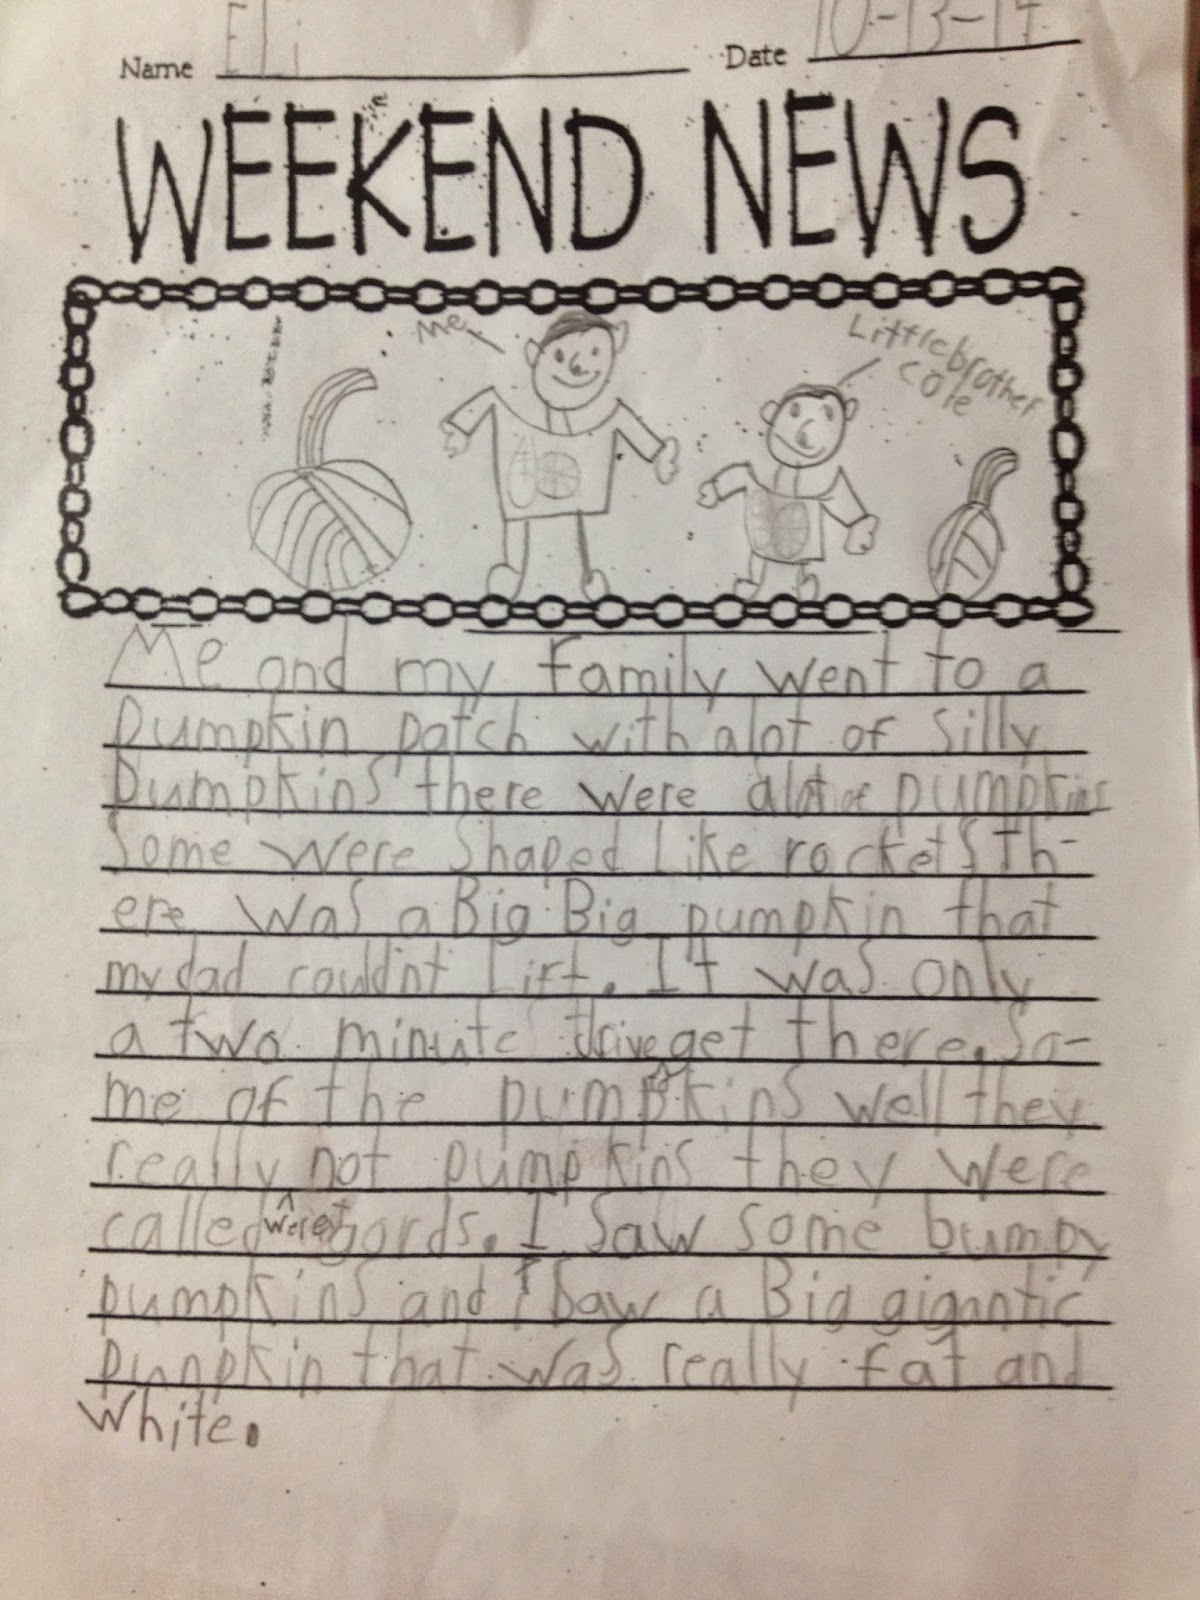 Name Eli Date 10-13-14
WEEKEND NEWS
Me
Little brother
cole
Me and my family went to a
pumpkin patch with alot of silly
pumpkins there were alot of pumpkins
some were shaped like rockets th-
ere was a Big Big pumpkin that
my dad could'nt lift. It was only
a two minute drive get there. So-
me of the pumpkins well they
really not pumpkins they were
called were gords. I saw some bumpy
pumpkins and I saw a Big gigantic
punpkin that was really fat and
white.